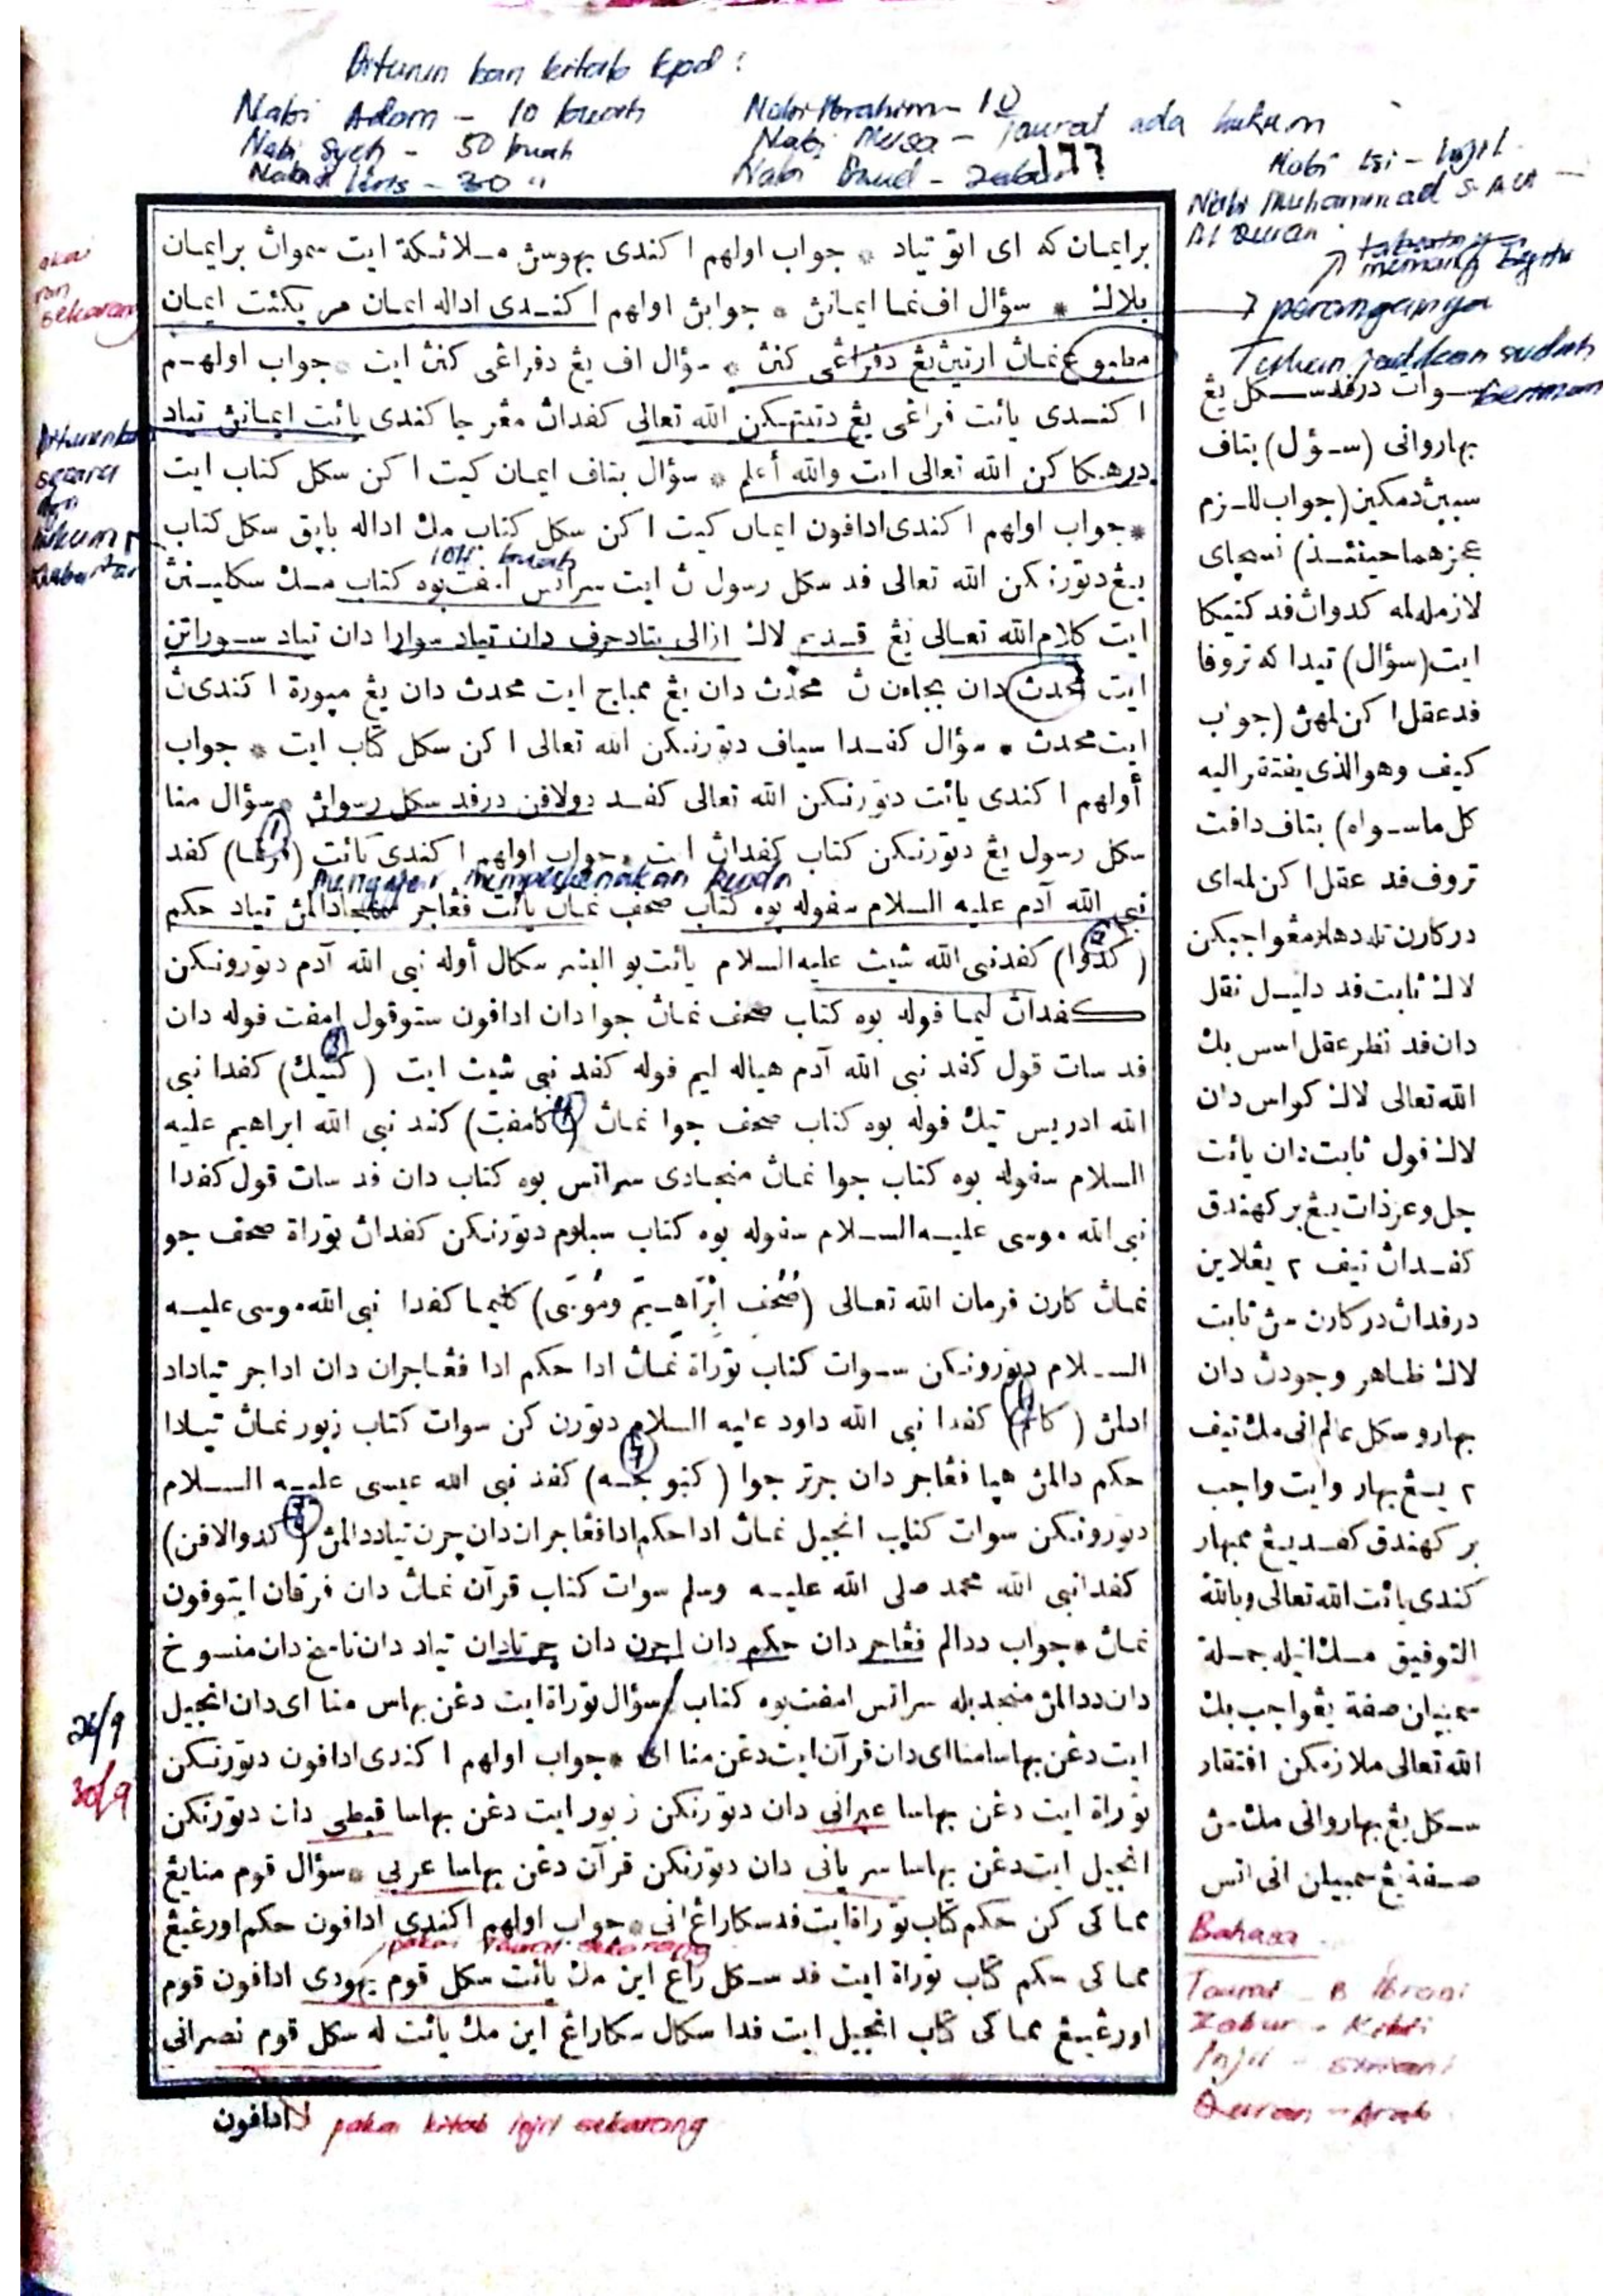 Diturun kan kitab kpd :
Nabi Adam - 10 buah
Nabi Syeh - 50 buah
Nabi Idris - 30 "
Nabi Ibrahim - 10
Nabi Musa - Taurat ada hukum
Nabi Daud - Zabur
١٦٦
Nabi Isi - Injil
Nabi Muhammad S.A.W -
Al Quran
memang begitu
perangainya
Tuhan jadikan sudah
beriman
برايمان كه اى اتو تياد * جواب اولهم اكندى بهوسڽ ملائكة ايت سموان برايمان
بلاك * سؤال اف نما ايمانڽ * جوابڽ اولهم اكندى اداله ايمان مريكئت ايمان
مطبوع نمان ارتيڽ يڠ دفراڠى كنڽ * سؤال اف يڠ دفراڠى كنڽ ايت * جواب اولهم
اكندى يائت فراڠى يڠ دتيتهكن الله تعالى كفدان مڠرجاكندى يائت ايمانڽ تياد
درهكاكن الله تعالى ايت والله أعلم * سؤال بتاف ايمان كيت اكن سكل كتاب ايت
* جواب اولهم اكندى ادافون ايمان كيت اكن سكل كتاب مك اداله بايق سكل كتاب
104 buah
يڠ دتورنكن الله تعالى فد سكل رسول ن ايت سراتس امفت بوه كتاب مك سكلينڽ
ايت كلام الله تعالى يڠ قديم لاك ازالى بتاد حرف دان تياد سوارا دان تياد سوراتن
ايت محدث دان بجاءن ن محدث دان يڠ ممباج ايت محدث دان يڠ ميورة اكندى ن
ايت محدث * سؤال كفدا سياف دتورنكن الله تعالى اكن سكل كتاب ايت * جواب
أولهم اكندى يائت دتورنكن الله تعالى كفد دولافن درفد سكل رسولڽ * سؤال منا
سكل رسول يڠ دتورنكن كتاب كفدان ايت * جواب اولهم اكندى يائت (فرتما) كفد
نبى الله آدم عليه السلام سفوله بوه كتاب صحف نمان يائت فڠاجر سهجا دالمڽ تياد حكم
(كدوا) كفد نبى الله شيث عليه السلام يائت بو البشر سكال أوله نبى الله آدم دتورونكن
كفدان ليما فوله بوه كتاب صحف نمان جوا دان ادافون ستوقول امفت فوله دان
فد سات قول كفد نبى الله آدم هياله ليم فوله كفد نبى شيث ايت (كتيك) كفدا نبى
الله ادريس تيك فوله بوه كتاب صحف جوا نمان (كامفت) كفد نبى الله ابراهيم عليه
السلام سفوله بوه كتاب جوا نمان منجادى سراتس بوه كتاب دان فد سات قول كفدا
نبى الله موسى عليه السلام سفوله بوه كتاب سبلوم دتورنكن كفدان توراة صحف جو
نمان كارن فرمان الله تعالى (صُحُفِ اِبْرَاهِيمَ وَمُوسَى) كليما كفدا نبى الله موسى عليه
السلام دتورونكن سوات كتاب توراة نمان ادا حكم ادا فڠاجران دان اداجر تياداد
ادلمڽ (كانم) كفدا نبى الله داود عليه السلام دتورن كن سوات كتاب زبور نمان تيادا
حكم دالمڽ هيا فڠاجر دان جرتر جوا (كتوجه) كفد نبى الله عيسى عليه السلام
دتورونكن سوات كتاب انجيل نمان ادا حكم ادا فڠاجران دان چرن تياد دالمڽ (كدوالافن)
كفد نبى الله محمد صلى الله عليه وسلم سوات كتاب قرآن نمان دان فرقان ايتوفون
نمان * جواب ددالم فڠاجر دان حكم دان اجرن دان چرتادان تياد دان ناسخ دان منسوخ
دان ددالمڽ منجد بله سراتس امفت بوه كتاب * سؤال توراة ايت دڠن بهاس منا اى دان انجيل
ايت دڠن بهاسا منا اى دان قرآن ايت دڠن منا اى * جواب اولهم اكندى ادافون دتورنكن
توراة ايت دڠن بهاسا عبرانى دان دتورنكن زبور ايت دڠن بهاسا قبطى دان دتورنكن
انجيل ايت دڠن بهاسا سريانى دان دتورنكن قرآن دڠن بهاسا عربى * سؤال قوم منا يڠ
مماكى كن حكم كتاب توراة ايت فد سكاراڠ انى * جواب اولهم اكندى ادافون حكم اورڠ يڠ
مماكى حكم كتاب توراة ايت فد سكل راڠ اين مك يائت سكل قوم يهودى ادافون قوم
اورڠ يڠ مماكى كتاب انجيل ايت فدا سكال سكاراڠ اين مك يائت له سكل قوم نصرانى
ادافون
pakai kitab Injil sekarang
سوات درفد سكل يڠ
بهاروانى (سؤل) بتاف
سببڽ دمكين (جواب للزم
عجزهما حينئذ) نسچاى
لازمله لمه كدوان فد كتيكا
ايت (سؤال) تيداكه تروفا
فد عقل اكن لمهڽ (جواب
كيف وهو الذى يفتقر اليه
كل ماسواه) بتاف دافت
تروف فد عقل اكن لمه اى
دركارن تله دهلا مڠواجبكن
لاك ثابت فد دليل نقل
دان فد نظر عقل اسس بك
الله تعالى لاك كواس دان
لاك فول ثابت دان يائت
جل وعز ذات يڠ بركهندق
كفدان تيف ٢ يڠلاين
درفدان دركارن سڽ ثابت
لاك ظاهر وجودن دان
بهارو سكل عالم انى مك تيف
٢ يڠ بهارو ايت واجب
بركهندق كفد يڠ ممبهار
كندى يائت الله تعالى وبالله
التوفيق مك انيله جملة
سمبيلن صفة يڠواجب بك
الله تعالى ملازمكن افتقار
سكل يڠ بهاروانى مك سڽ
صفة يڠ سمبيلن انى اتس
Bahasa
Taurat - B Ibrani
Zabur - Kibti
Injil - Siriani
Quran - Arab
26/9
30/9